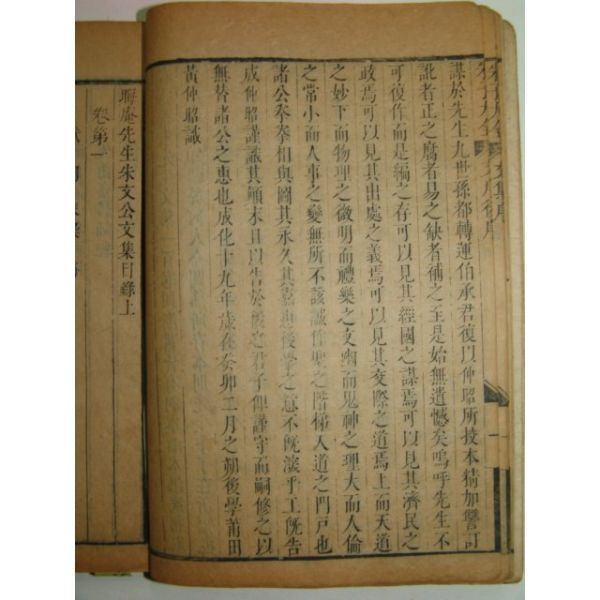 謀於先生九世孫都轉運伯承君復以仲昭所技本精加讐訂
訛者正之腐者易之缺者補之至是始無遺憾矣嗚呼先生不
可復作而是編之存可以見其經國之謀焉可以見其濟民之
政焉可以見其出處之義焉可以見其交際之道焉上而天道
之妙下而物理之微明而禮樂之文幽而鬼神之理大而人倫
之常小而人事之變無所不該誠作聖之階梯入道之門戶也
諸公拳拳相與圖其永久其嘉惠後學之意不旣淡乎工旣告
成仲昭謹識其顛末且以告於後之君子俾謹守而嗣修之以
無替諸公之惠也成化十九年歲在癸卯二月之朔後學莆田
黃仲昭識
晦庵先生朱文公文集目錄上
卷第一